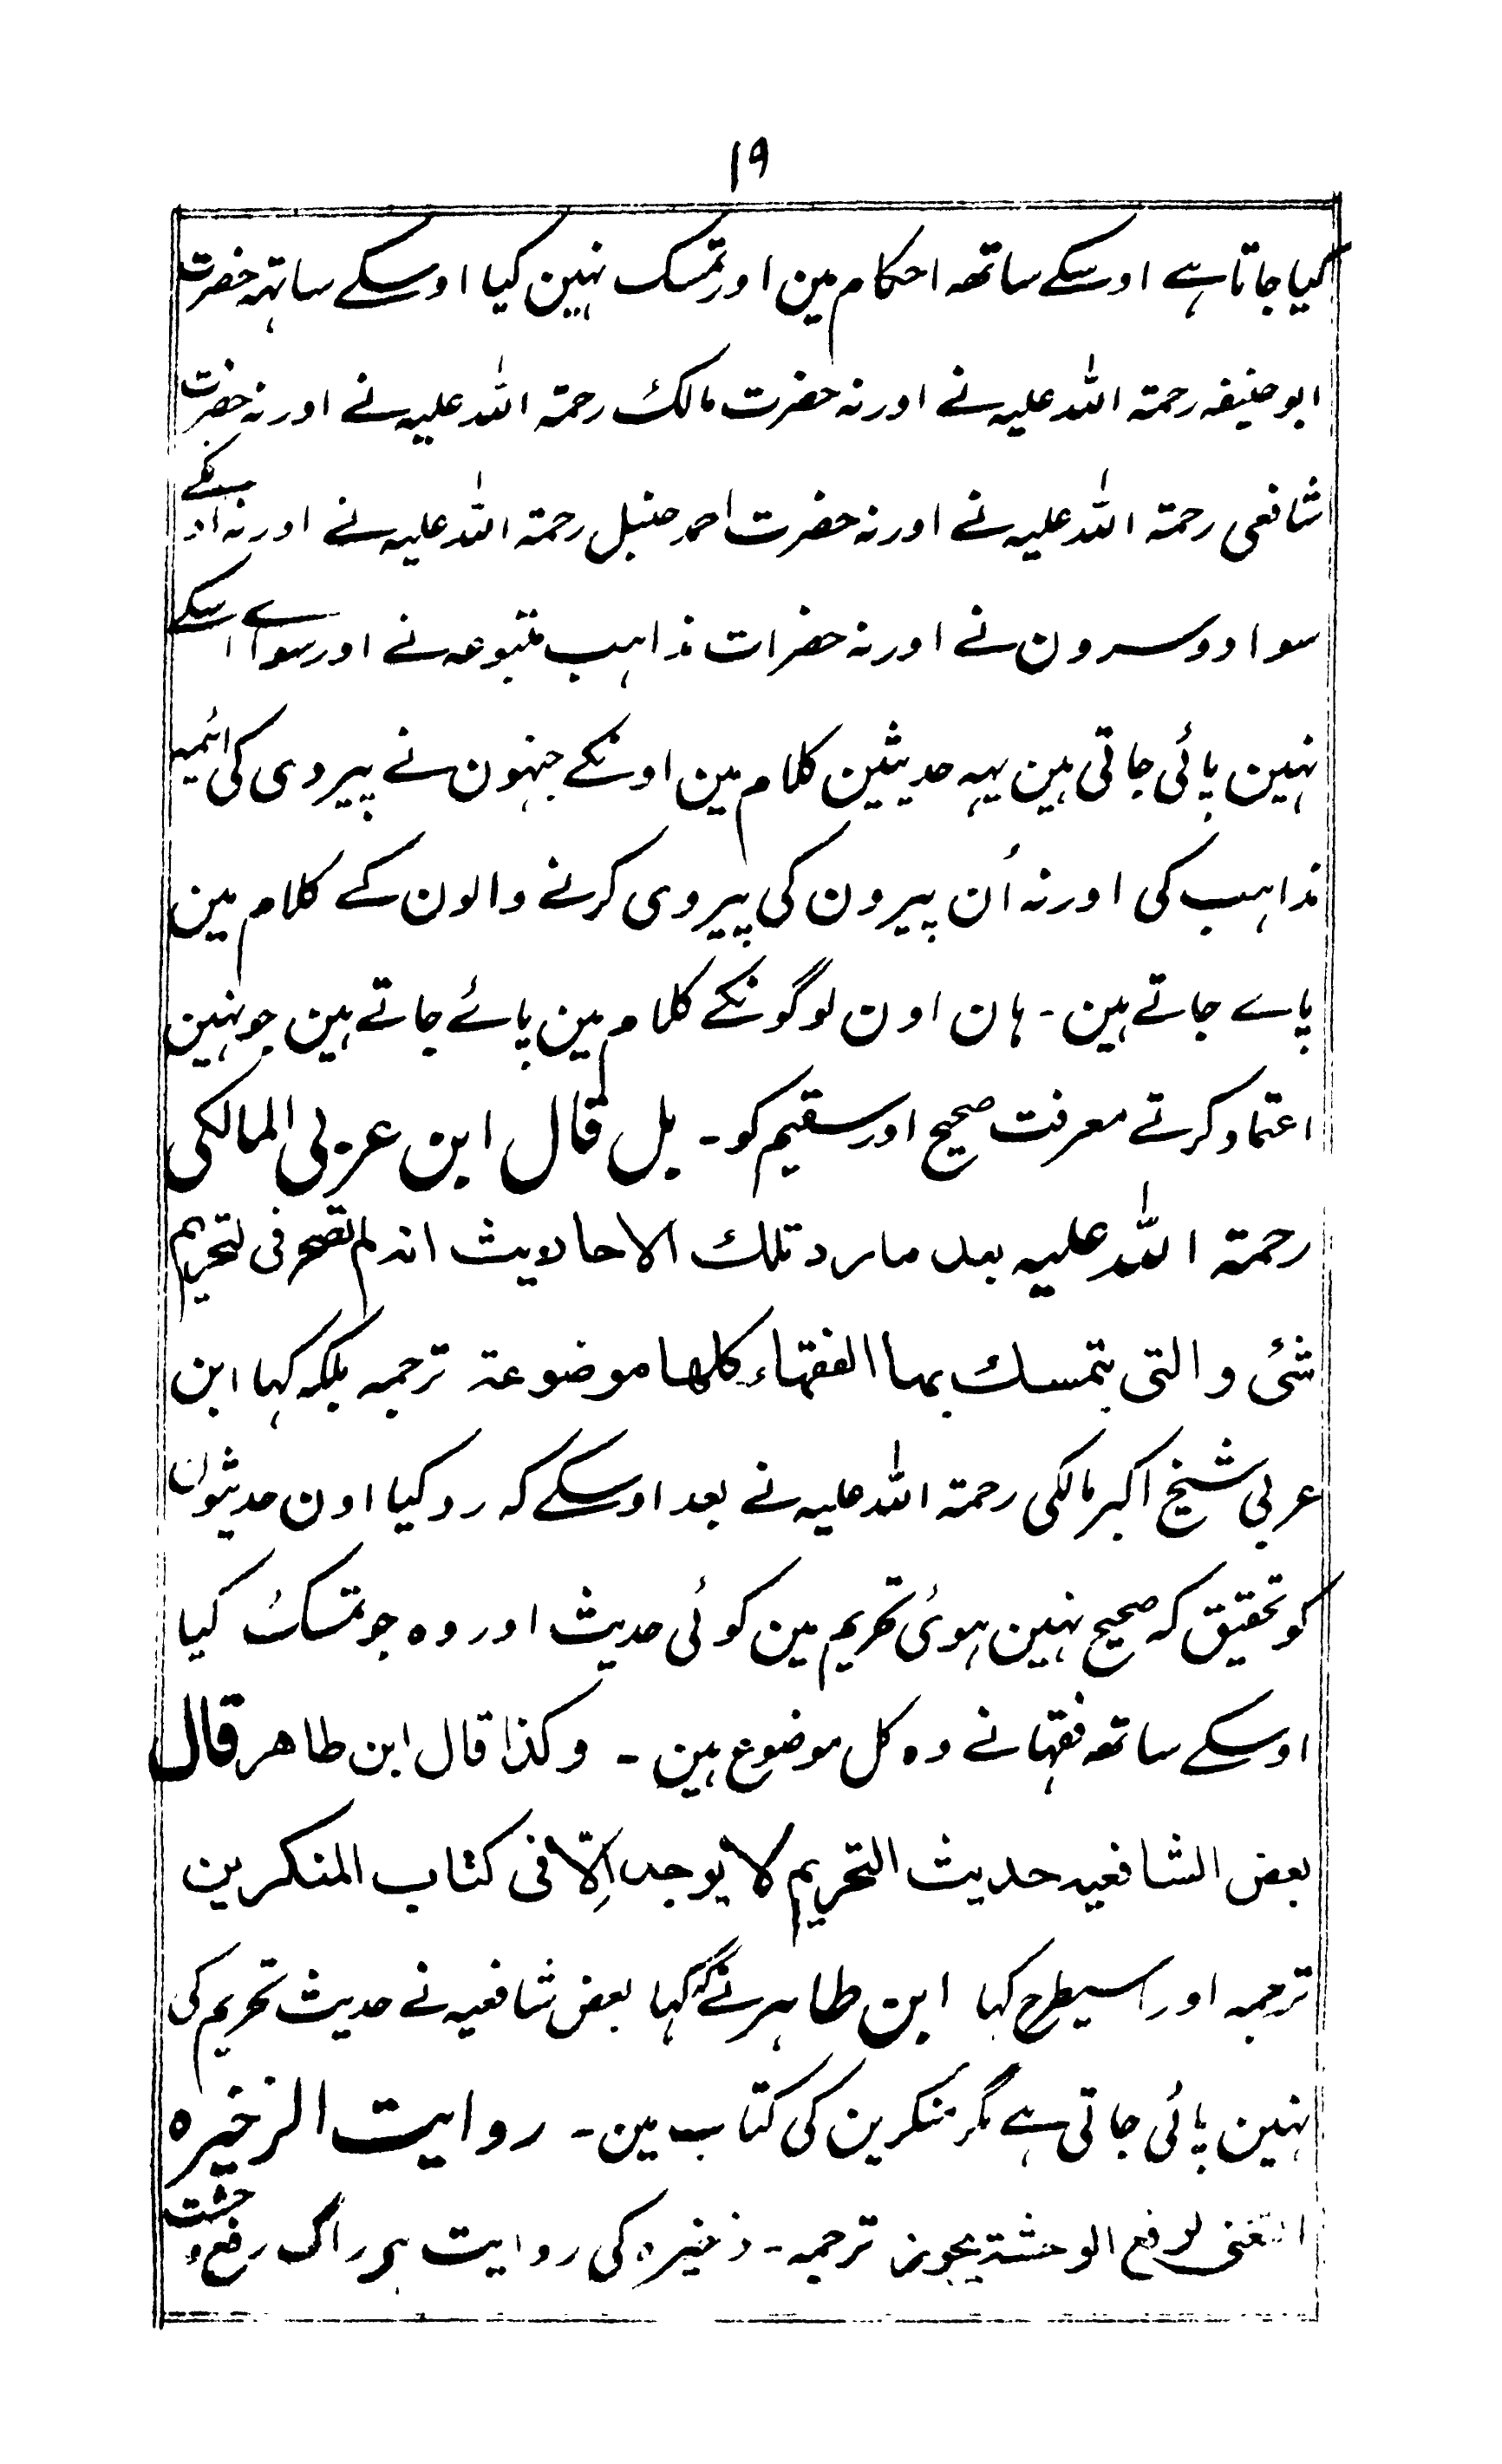 ۱۹
کیا جاتا ہے اوسکے ساتھ احکام مین اور تمسک نہین کیا اوسکے ساتہہ حضرت
ابو حنیفہ رحمۃ اللہ علیہ نے اور نہ حضرت مالک رحمۃ اللہ علیہ نے اور نہ حضرت
شافعی رحمۃ اللہ علیہ نے اور نہ حضرت احمد حنبل رحمۃ اللہ علیہ نے اور نہ اوسکے
سوا دوسرون نے اور نہ حضرات مذاہب متبوعہ نے اور سواے اسکے
نہین پائی جاتی ہین یہہ حدیثین کلام مین اونکے جنہون نے پیروی کی ائمیہ
مذاہب کی اور نہ اُن پیرون کی پیروی کرنے والون کے کلام مین
پاے جاتے ہین - ہان اون لوگونکے کلام مین پائے جاتے ہین جو نہین
اعتماد کرتے معرفت صحیح اور سقیم کو - بل قال ابن عربی المالکی
رحمۃ اللہ علیہ بعد ما رد تلک الاحادیث انہ لم تصح فی لتحریم
شئ والتی یتمسک بہا الفقہاء کلہا موضوعۃ ترجمہ بلکہ کہا ابن
عربی شیخ اکبر مالکی رحمۃ اللہ علیہ نے بعد اوسکے کہ رد کیا اون حدیثون
کو تحقیق کہ صحیح نہین ہوئ تحریم مین کوئی حدیث اور وہ جو تمسک کیا
اوسکے ساتھ فقہا نے وہ کل موضوع ہین - وکذا قال ابن طاھر قال
بعض الشافعیہ حدیث التحریم لا یوجد اِلّا فی کتاب المنکرین
ترجمہ اور اسیطرح کہا ابن طاہر نے کہ کہا بعض شافعیہ نے حدیث تحریم کی
نہین پائی جاتی ہے مگر منکرین کی کتاب مین - روایت الزخیرہ
التغنی لرفع الوحشۃ یجوز ترجمہ - ذخیرہ کی روایت ہے راگ رفع وحشت